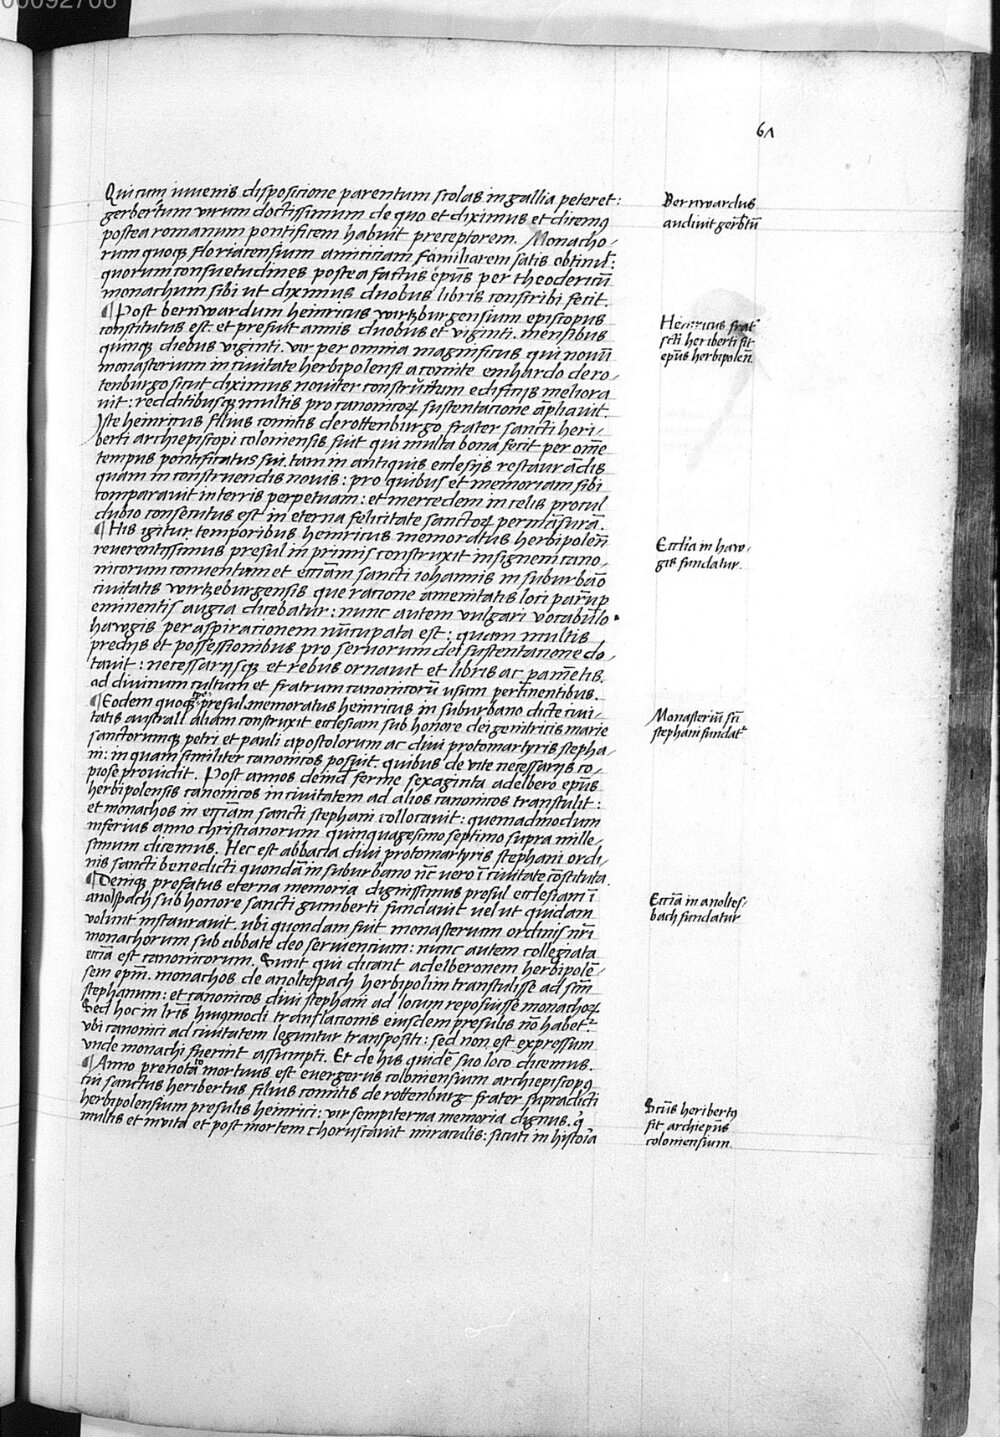 00092706
61
Qui cum iuvenis disposicione parentum scolas in gallia peteret:
gerbertum virum doctissimum de quo et diximus et dicemꝰ
postea romanum pontificem habuit preceptorem. Monacho-
rum quoqꝫ floriacensium amiciciam familiarem satis obtinuit:
quorum consuetudines postea factus ep̄us per theodericū
monachum sibi ut diximus duobus libris conscribi fecit.
¶ Post bernwardum heinricus wirtzburgensium episcopus
constitutus est et prefuit annis duobus et viginti. mensibus
quinqꝫ diebus viginti. vir per omnia magnificus qui novū
monasterium in civitate herbipolensi a comite emhardo de ro-
tenburgo sicut diximus noviter constructum edificijs meliora
vit: redditibusqꝫ multis pro canonicoꝝ sustentacione āpliavit.
Iste heinricus filius comitis de rottenburgo frater sancti heri-
berti archiepiscopi coloniensis fuit qui multa bona fecit per om̄e
tempus pontificatus sui. tam in antiquis ecclesijs restaurādis
quam in construendis novis: pro quibus et memoriam sibi
comparavit in terris perpetuam: et mercedem in celis procul
dubio consecutus est in eterna felicitate sanctoꝝ permāsurā.
¶ His igitur temporibus heinricus memoratus herbipoleñ
reverentissimus presul in primis construxit insignem cano-
nicorum conventum et ecc̄iam sancti iohannis in suburbāo
civitatis wirtzeburgensis que racione amenitatis loci parūp
eminentis augia dicebatur: nunc autem vulgari vocabulo
hawgis per aspiracionem nūcupata est: quam multis
predijs et possessionibus pro servorum dei sustentacione do-
tavit: necessarijsqꝫ et rebus ornavit et libris ac pam̄etis
ad divinum cultum et fratrum canonicorū usum pertinentibus.
¶ Eodem quoqꝫ tp̄e presul memoratus heinricus in suburbano dicte civi-
tatis australi aliam construxit ecclesiam sub honore dei genitricis marie
sanctorumqꝫ petri et pauli apostolorum ac divi protomartyris stepha-
ni: in quam similiter canonicos posuit. quibus de vite necessarijs co-
piose providit. Post annos deinde ferme sexaginta adelbero ep̄us
herbipolensis canonicos in civitatem ad alios canonicos transtulit:
et monachos in ecc̄iam sancti stephani collocavit: quemadmodum
inferius anno christianorum quinquagesimo septimo supra mille-
simum dicemus. Hec est abbacia divi protomartyris stephani ordi-
nis sancti benedicti quondā in suburbano nc̄ vero ī civitate cōstituta.
¶ Deniqꝫ prefatus eterna memoria dignissimus presul ecclesiam ī
anolspach sub honore sancti gumberti fundavit vel ut quidam
volunt instauravit. ubi quondam fuit monasterium ordinis nr̄i
monachorum sub abbate deo serviencium: nunc autem collegiata
ecc̄ia est canonicorum. Sunt qui dicant adelberonem herbipolē-
sem ep̄m. monachos de anoltespach herbipolim transtulisse ad sc̄m
stephanum: et canonicos divi stephani ad locum reposuisse monachoꝝ
Sed hoc in lr̄is huiꝰmodi translacionis eiusdem presulis nō habet̉
ubi canonici ad civitatem leguntur transpositi: sed non est expressum
unde monachi fuerint assumpti. Et de his quidē suo loco dicemus.
¶ Anno prenotato mortuus est evergerus coloniensium archiepiscopꝰ
cui sanctus heribertus filius comitis de rottenburg frater supradicti
herbipolensium presulis heinrici: vir sempiterna memoria dignus. q̇
multis et in vita et post mortem choruscavit miraculis: sicuti in histoīa
Bernwardus
audivit gerb̄tū
Heinricus frat̉
sc̄ti heriberti fit
ep̄us herbipoleñ
Eccl̄ia in haw-
gis fundatur.
Monasteriū sc̄i
stephani fundat̉
Ecc̄ia in anoltes-
bach fundatur
Sc̄us heribertꝰ
fit archiep̄us
coloniensium.